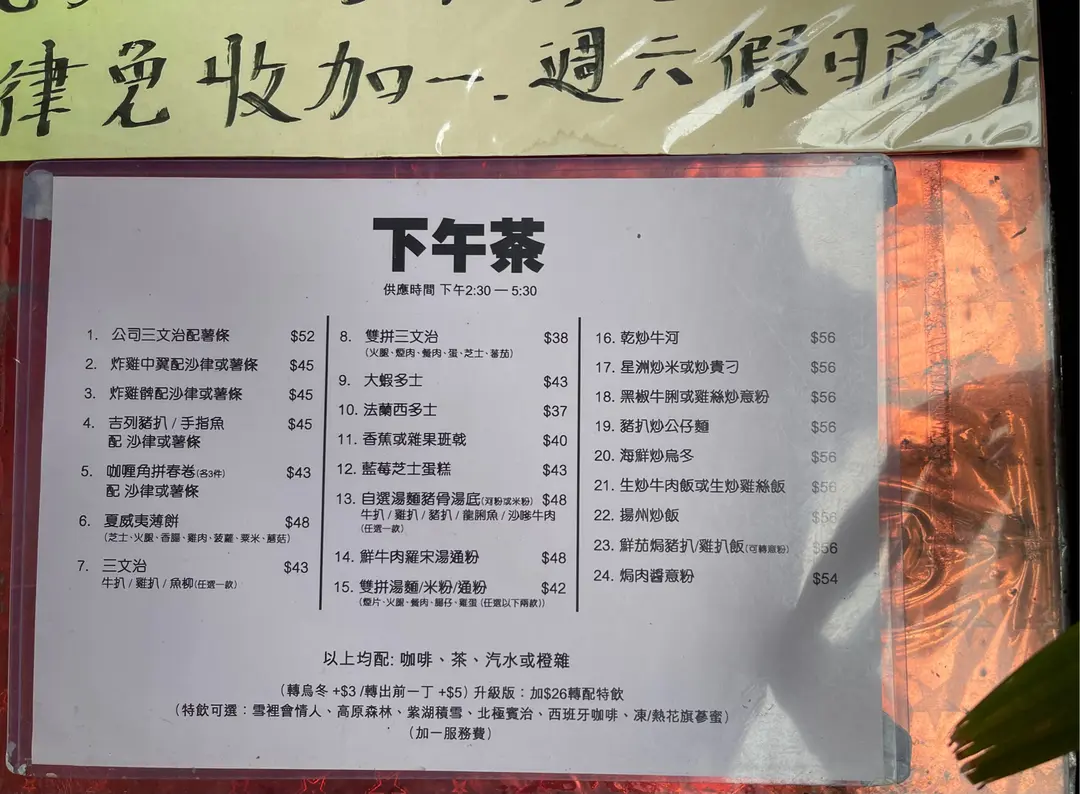 律免收加一.週六假日除外
下午茶
供應時間 下午2:30 — 5:30
1. 公司三文治配薯條 $52
2. 炸雞中翼配沙律或薯條 $45
3. 炸雞髀配沙律或薯條 $45
4. 吉列豬扒 / 手指魚 $45
配 沙律或薯條
5. 咖喱角拼春卷(各3件) $43
配 沙律或薯條
6. 夏威夷薄餅 $48
(芝士、火腿、香腸、雞肉、菠蘿、粟米、蘑菇)
7. 三文治 $43
牛扒 / 雞扒 / 魚柳(任選一款)
8. 雙拼三文治 $38
(火腿、煙肉、餐肉、蛋、芝士、蕃茄)
9. 大蝦多士 $43
10. 法蘭西多士 $37
11. 香蕉或雜果班戟 $40
12. 藍莓芝士蛋糕 $43
13. 自選湯麵豬骨湯底(河粉或米粉) $48
牛扒 / 雞扒 / 豬扒 / 龍脷魚 / 沙嗲牛肉
(任選一款)
14. 鮮牛肉羅宋湯通粉 $48
15. 雙拼湯麵/米粉/通粉 $42
(煙片、火腿、餐肉、腸仔、雞蛋 (任選以下兩款))
16. 乾炒牛河 $56
17. 星洲炒米或炒貴刁 $56
18. 黑椒牛脷或雞絲炒意粉 $56
19. 豬扒炒公仔麵 $56
20. 海鮮炒烏冬 $56
21. 生炒牛肉飯或生炒雞絲飯 $56
22. 揚州炒飯 $56
23. 鮮茄焗豬扒/雞扒飯(可轉意粉) $56
24. 焗肉醬意粉 $54
以上均配: 咖啡、茶、汽水或橙雜
(轉烏冬 +$3 /轉出前一丁 +$5) 升級版：加$26轉配特飲
(特飲可選：雪裡會情人、高原森林、紫湖積雪、北極賓治、西班牙咖啡、凍/熱花旗蔘蜜)
(加一服務費)